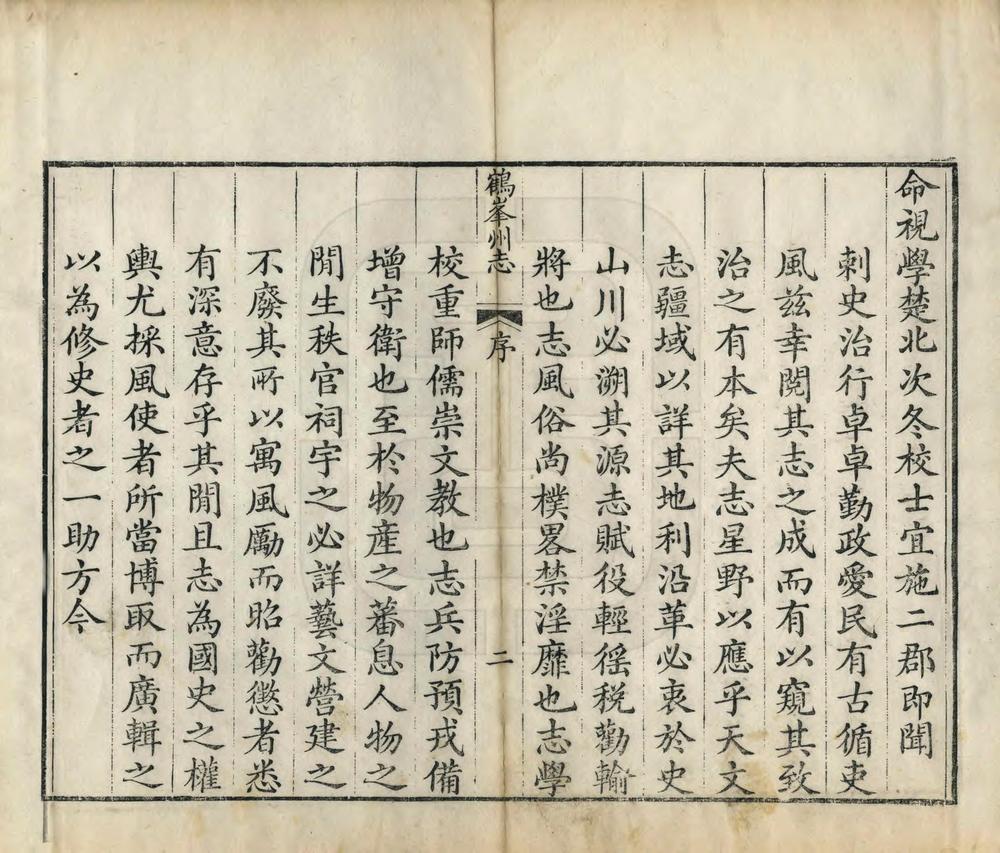 命視學楚北次冬校士宜施二郡即聞
刺史治行卓卓勤政愛民有古循吏
風兹幸閱其志之成而有以窺其致
治之有本矣夫志星野以應乎天文
志疆域以詳其地利沿革必衷於史
山川必溯其源志賦役輕徭税勸輸
將也志風俗尚樸畧禁淫靡也志學
鶴峯州志
序
二
校重師儒崇文教也志兵防預戎備
增守衛也至於物產之蕃息人物之
閒生秩官祠宇之必詳藝文營建之
不廢其所以寓風勵而昭勸懲者悉
有深意存乎其閒且志為國史之權
輿尤採風使者所當博取而廣輯之
以為修史者之一助方今